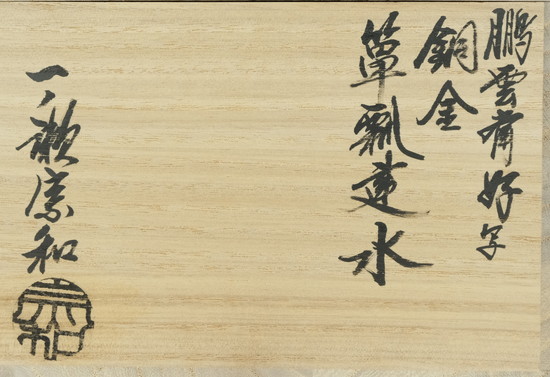 鵬雲斎好写
銅金
箪瓢建水
一ノ瀬宗和
宗和